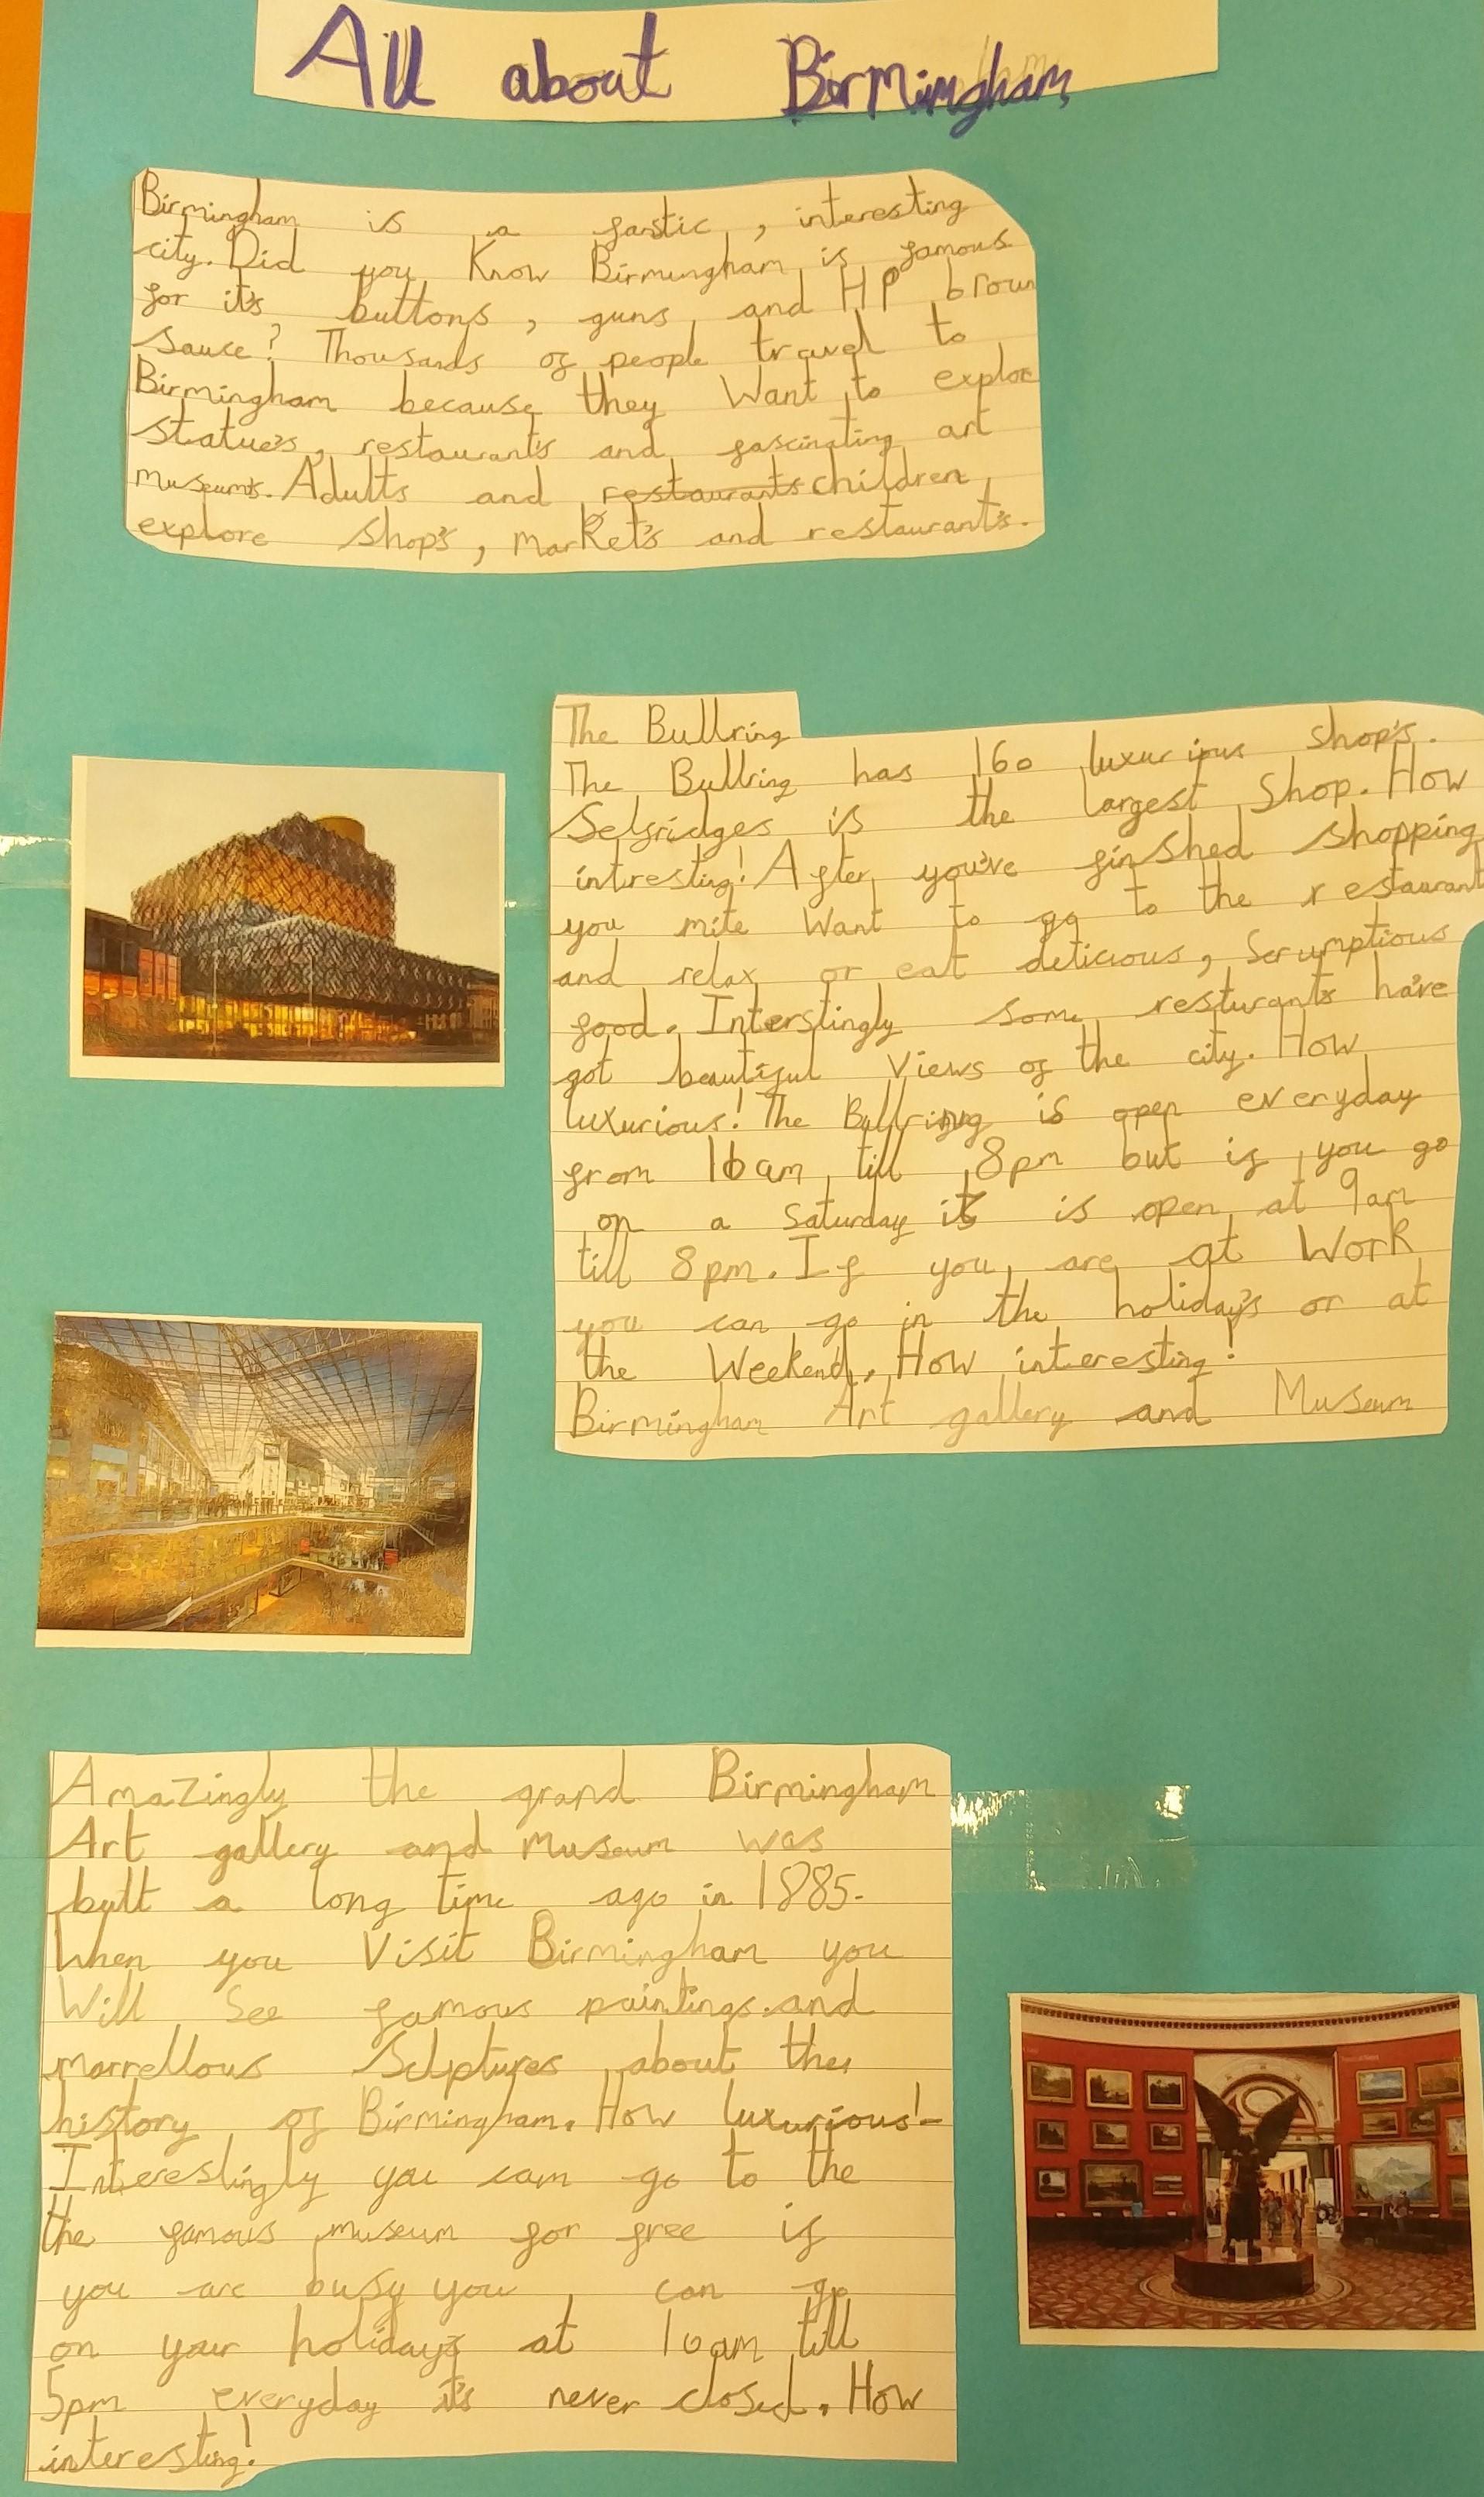 All about Birmingham
Birmingham is a fastic, interesting
city. Did you Know Birmingham is famous
for it's buttons, guns and HP brown
sause? Thousands of people travel to
Birmingham because they Want to explore
statue's, restaurant's and fascinating art
museums. Adults and restaurants children
explore shop's, market's and restaurant's.
The Bullring
The Bullring has 160 luxurious shop's.
Selfridges is the largest shop. How
intresting! After you've finshed shopping
you mite Want to go to the restaurant
and relax or eat delicious, Scrumptious
food. Interstingly some resturants have
got beautiful Views of the city. How
luxurious! The Bullring is open everyday
from 10am till 8pm but if you go
on a Saturday it is open at 9am
till 8pm. If you are at Work
you can go in the holiday's or at
the Weekend. How interesting!
Birmingham Art gallery and Museum
Amazingly the grand Birmingham
Art gallery and museum was
built a long time ago in 1885.
When you Visit Birmingham you
Will See famous paintings and
marrellous Sclptures about the
history of Birmingham. How luxurious!
Interestingly you can go to the
the famous museum for free if
you are busy you can go
on your holiday's at 10am till
5pm everyday it's never closed. How
interesting!